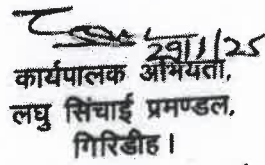 29/1/25
कार्यपालक अभियंता,
लघु सिंचाई प्रमण्डल,
गिरिडीह।